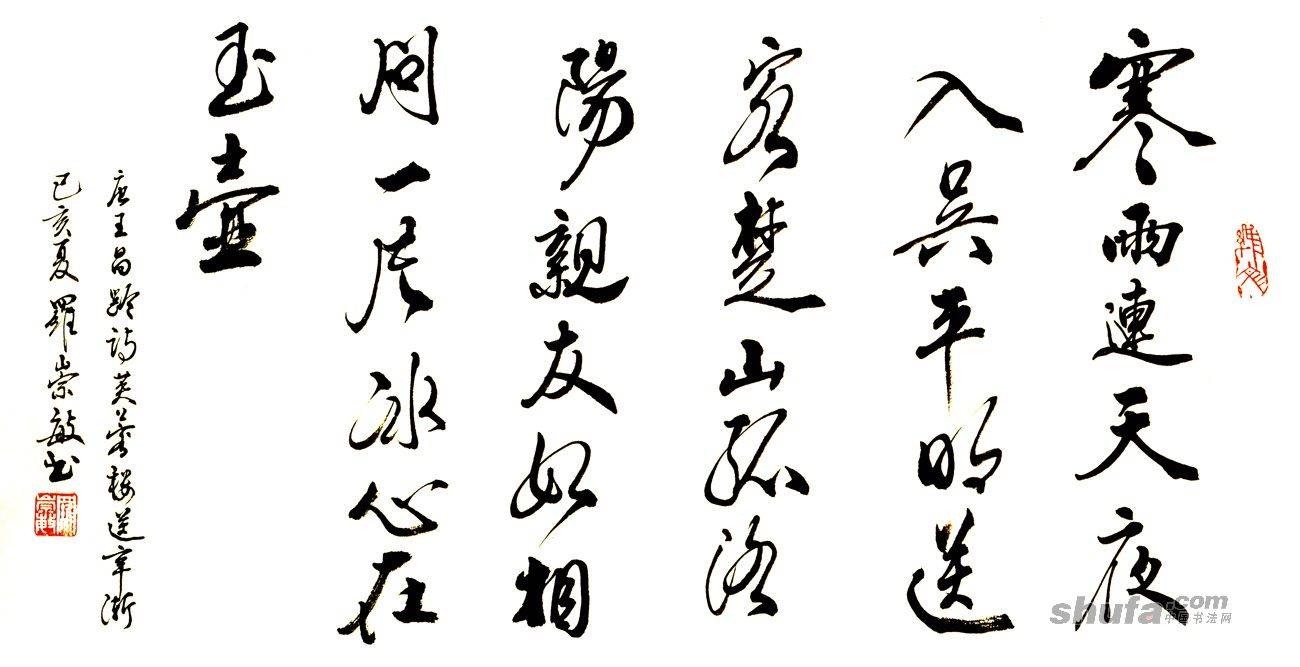 寒雨連天夜
入吳平明送
客楚山孤洛
陽親友如相
問一片冰心在
玉壺
唐王昌齡詩芙蓉樓送辛漸
己亥夏羅崇敏书
shufa.com
中国书法网